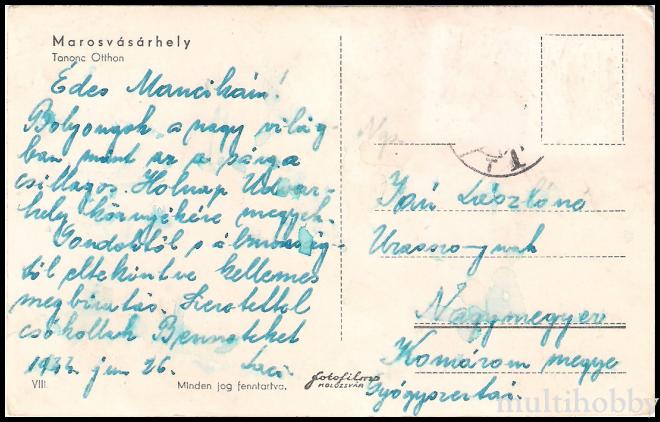 Marosvásárhely
Tanonc Otthon
Édes Mancikám!
Bolyongok a nagy világ-
ban, mint az a sárga
csillagos. Holnap Udvar-
hely környékére megyek.
Gondoktól s álmosság-
tól eltekintve kellemes
megbizatás. Szeretettel
csókollak Benneteket
1944 jun 26. Laci
VIII.
Minden jog fenntartva.
fotofilm
KOLOZSVÁR
Nagymegyer
Komárom megye
Gyógyszertár.
multihobby